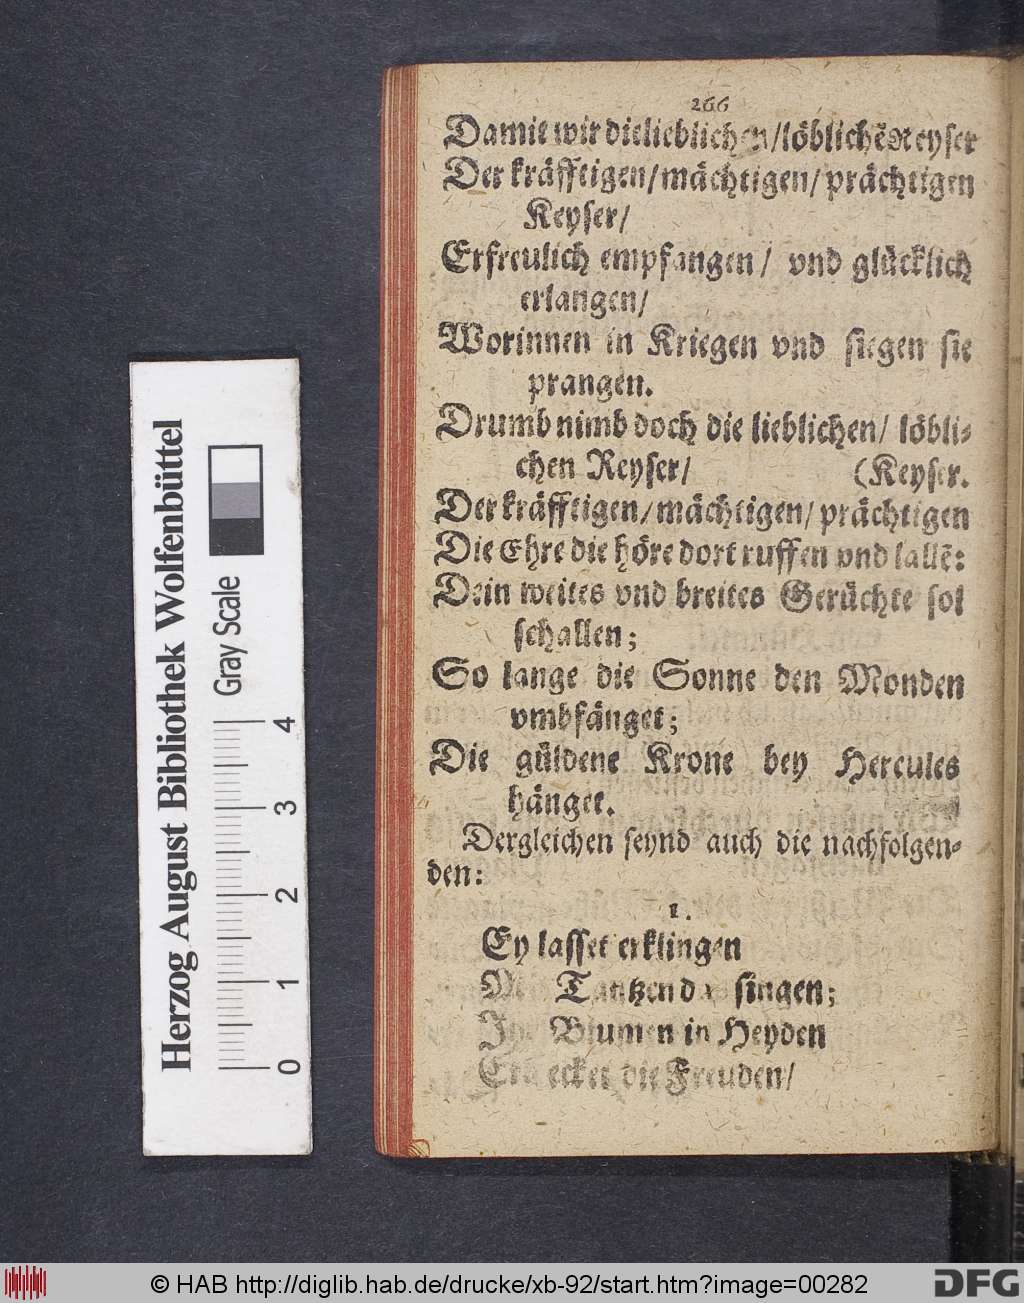 266
Damit wir die lieblichen/löblichẽ Reyser
Der kräfftigen/mächtigen/ prächtigen
Keyser/
Erfreulich empfangen/ vnd glücklich
erlangen/
Worinnen in Kriegen vnd siegen sie
prangen.
Drumb nimb doch die lieblichen/ löbli-
chen Reyser/ (Keyser.
Der kräfftigen/mächtigen/ prächtigen
Die Ehre die höre dort ruffen vnd lallẽ:
Dein weites vnd breites Gerüchte sol
schallen;
So lange die Sonne den Monden
vmbfänget;
Die güldene Krone bey Hercules
hänget.
Dergleichen seynd auch die nachfolgen-
den:
1.
Ey lasset erklingen
Tantzen singen;
Ihr Blumen in Heyden
Erwecket die Freuden/
Herzog August Bibliothek Wolfenbüttel
Gray Scale
0 1 2 3 4
© HAB http://diglib.hab.de/drucke/xb-92/start.htm?image=00282
DFG